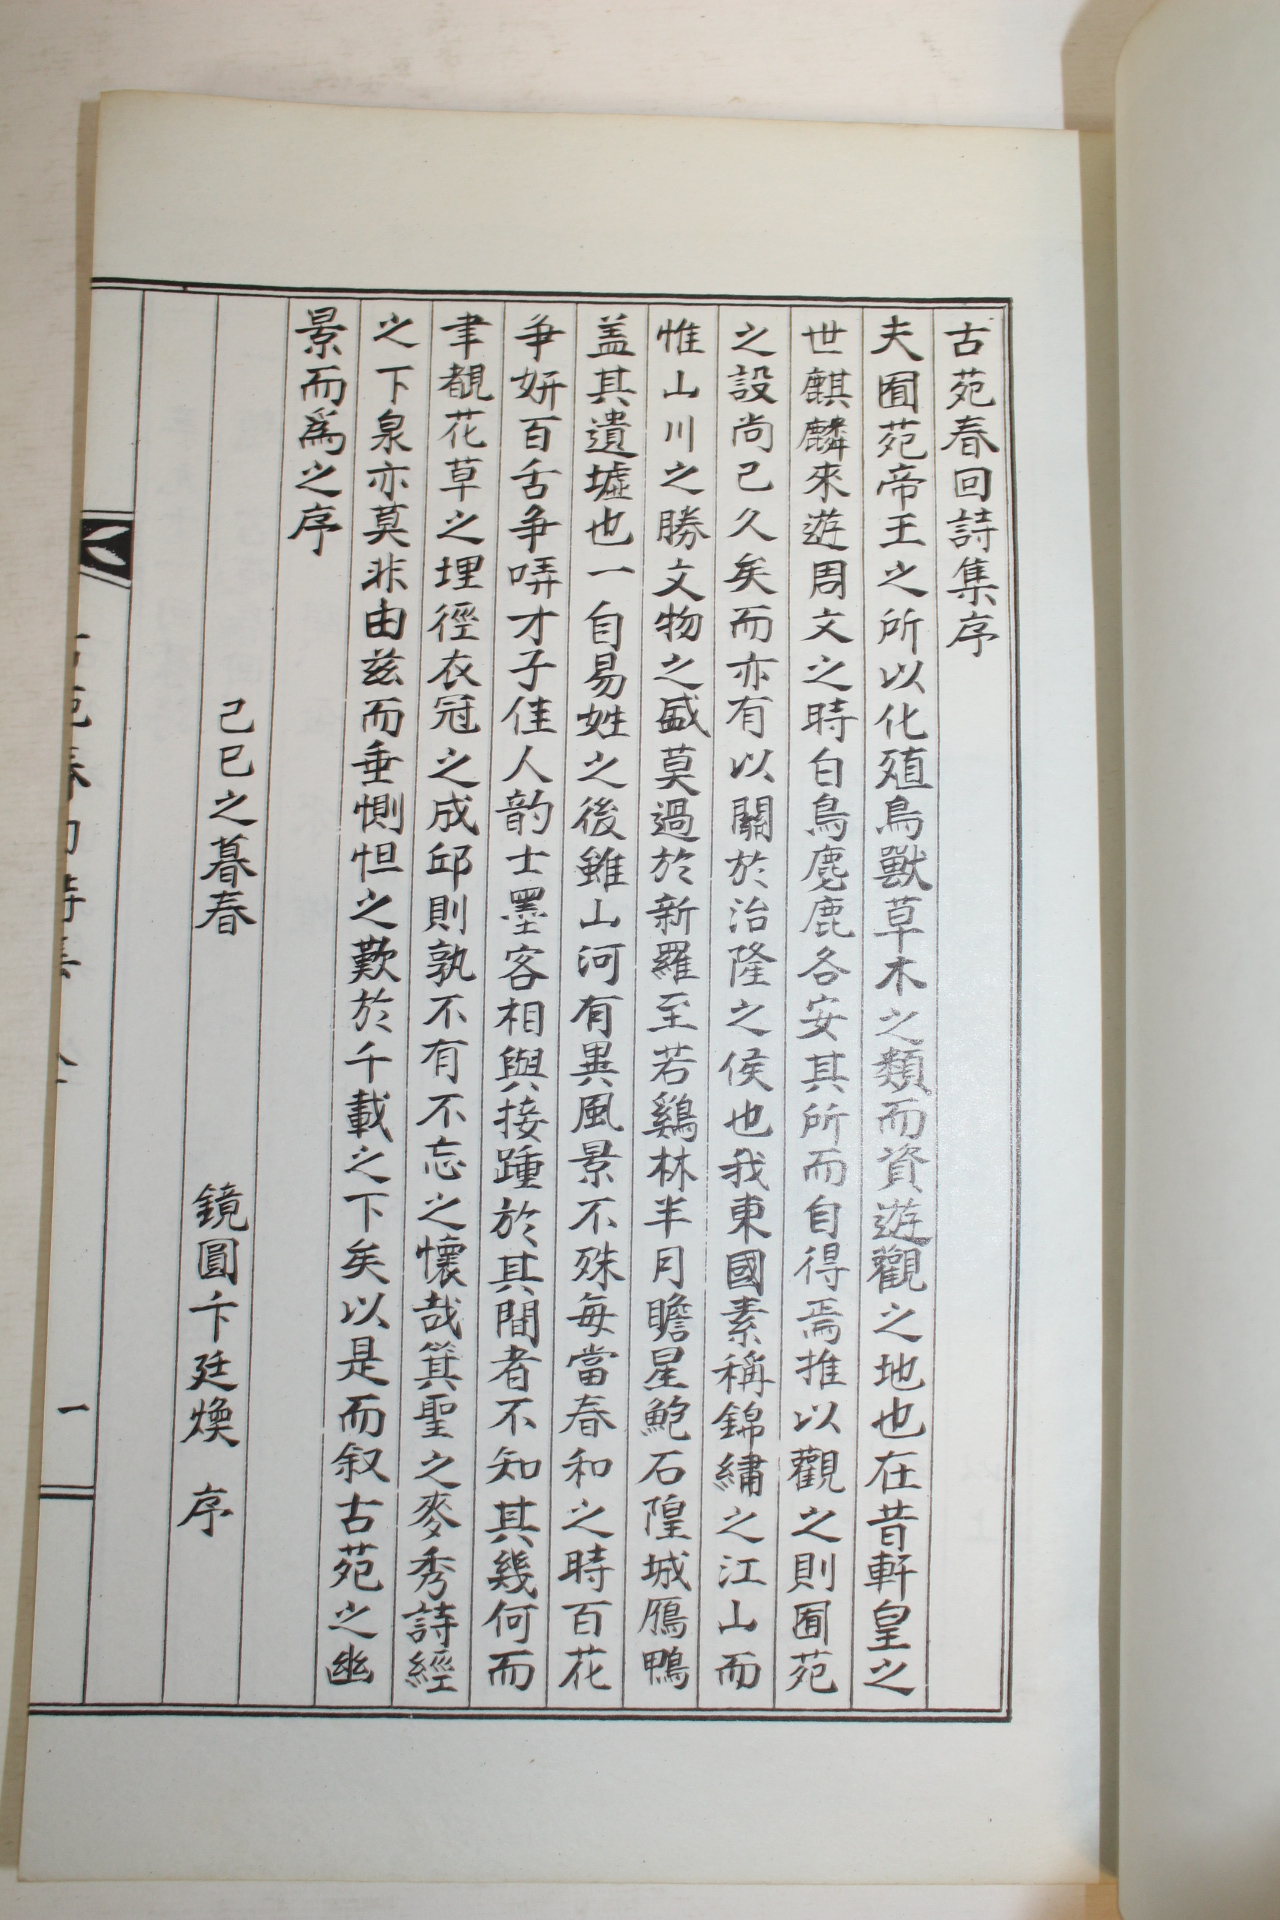 古苑春回詩集序
夫囿苑帝王之所以化殖鳥獸草木之類而資遊觀之地也在昔軒皇之
世麒麟來遊周文之時白鳥麀鹿各安其所而自得焉推以觀之則囿苑
之設尚已久矣而亦有以關於治隆之侯也我東國素稱錦繡之江山而
惟山川之勝文物之盛莫過於新羅至若鷄林半月瞻星鮑石隍城鴈鴨
盖其遺墟也一自易姓之後雖山河有異風景不殊每當春和之時百花
争妍百舌争哢才子佳人韵士墨客相與接踵於其間者不知其幾何而
聿覩花草之埋徑衣冠之成邱則孰不有不忘之懷哉箕聖之麥秀詩經
之下泉亦莫非由兹而垂惻怛之歎於千載之下矣以是而叙古苑之幽
景而爲之序
己巳之暮春
鏡圓卞廷煥 序
古苑春回詩集 全
一